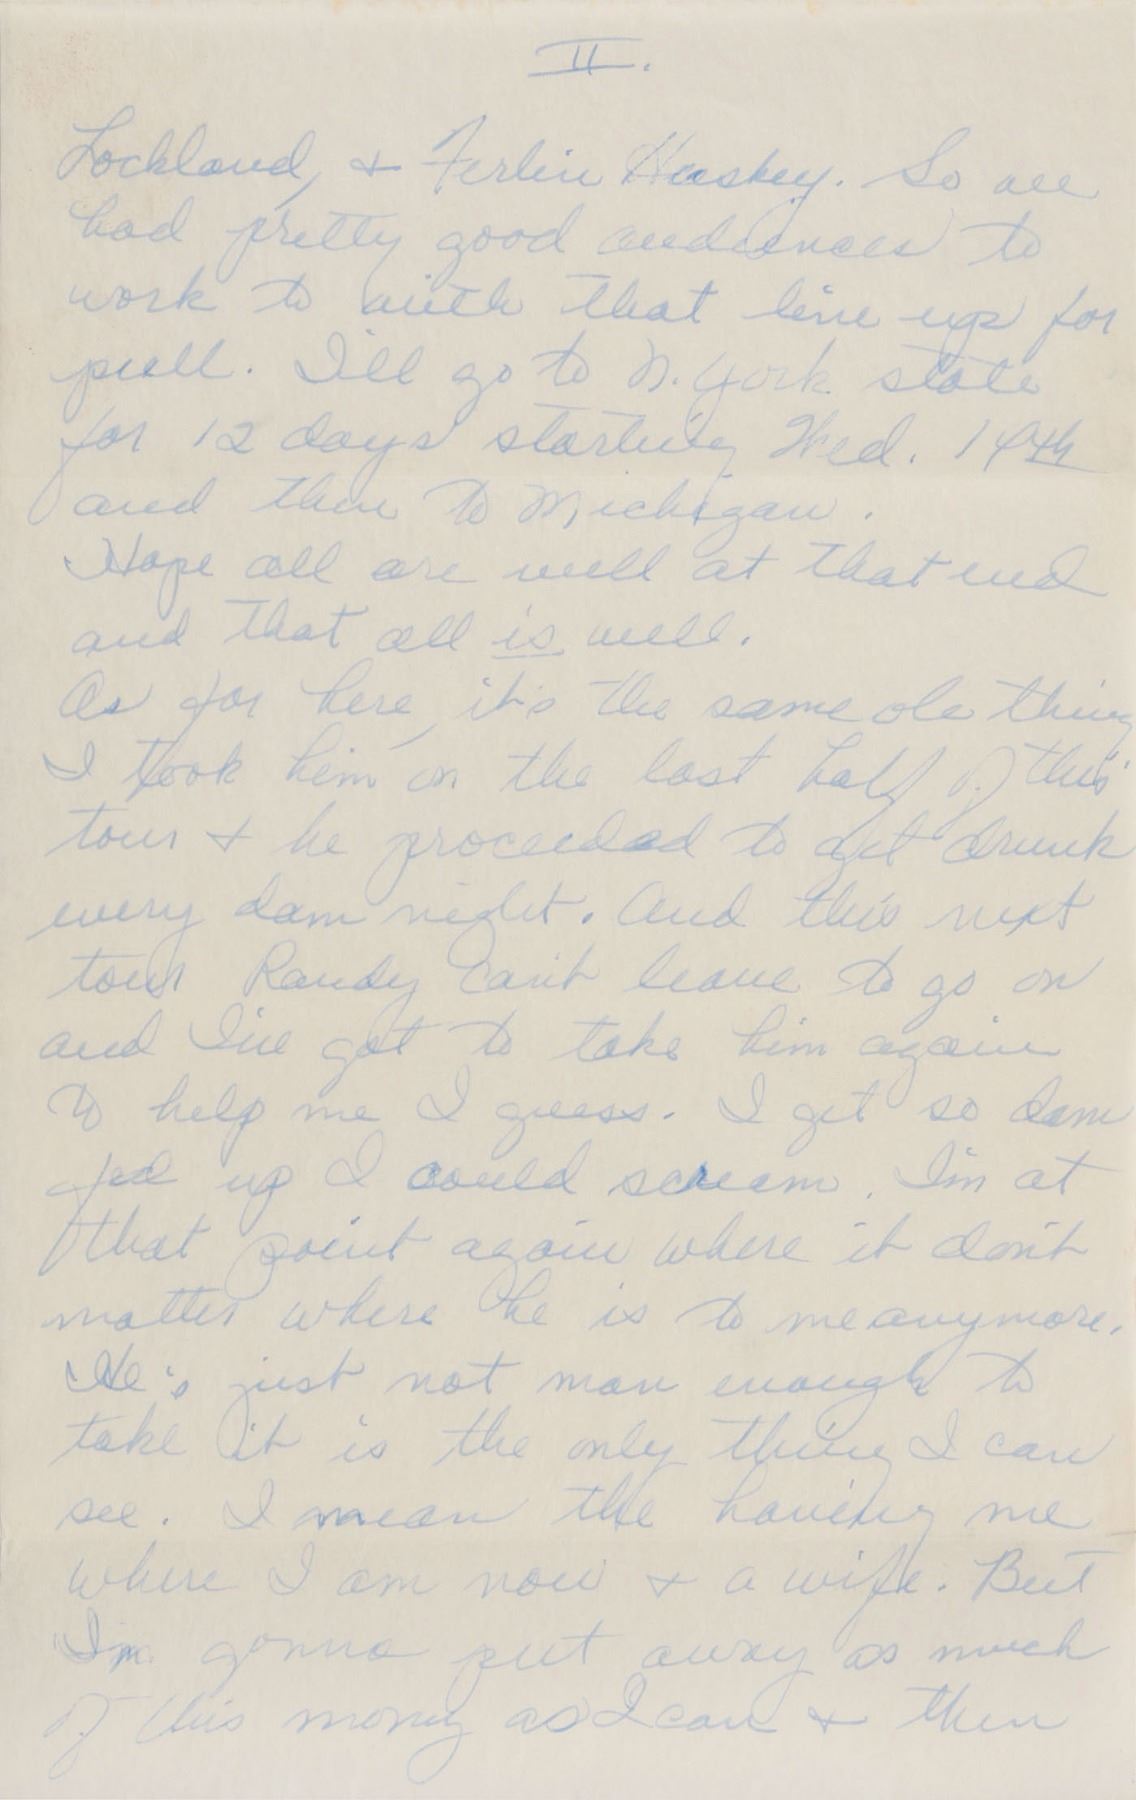 II.
Lockland, & Ferlin Huskey. So we
had pretty good audiences to
work to with that line up for
pull. I'll go to N. York state
for 12 days starting Wed. 14th
and then to Michigan.
Hope all are well at that end
and that all is well.
As for here, it's the same ole thing
I took him on the last half of this
tour & he proceeded to get drunk
every dam night. And this next
tour Randy can't leave to go on
and I've got to take him again
to help me I guess. I get so dam
fed up I could scream. I'm at
that point again where it don't
matter where he is to me anymore.
He's just not man enough to
take it is the only thing I can
see. I mean the having me
where I am now & a wife. But
I'm gonna put away as much
of this money as I can & then